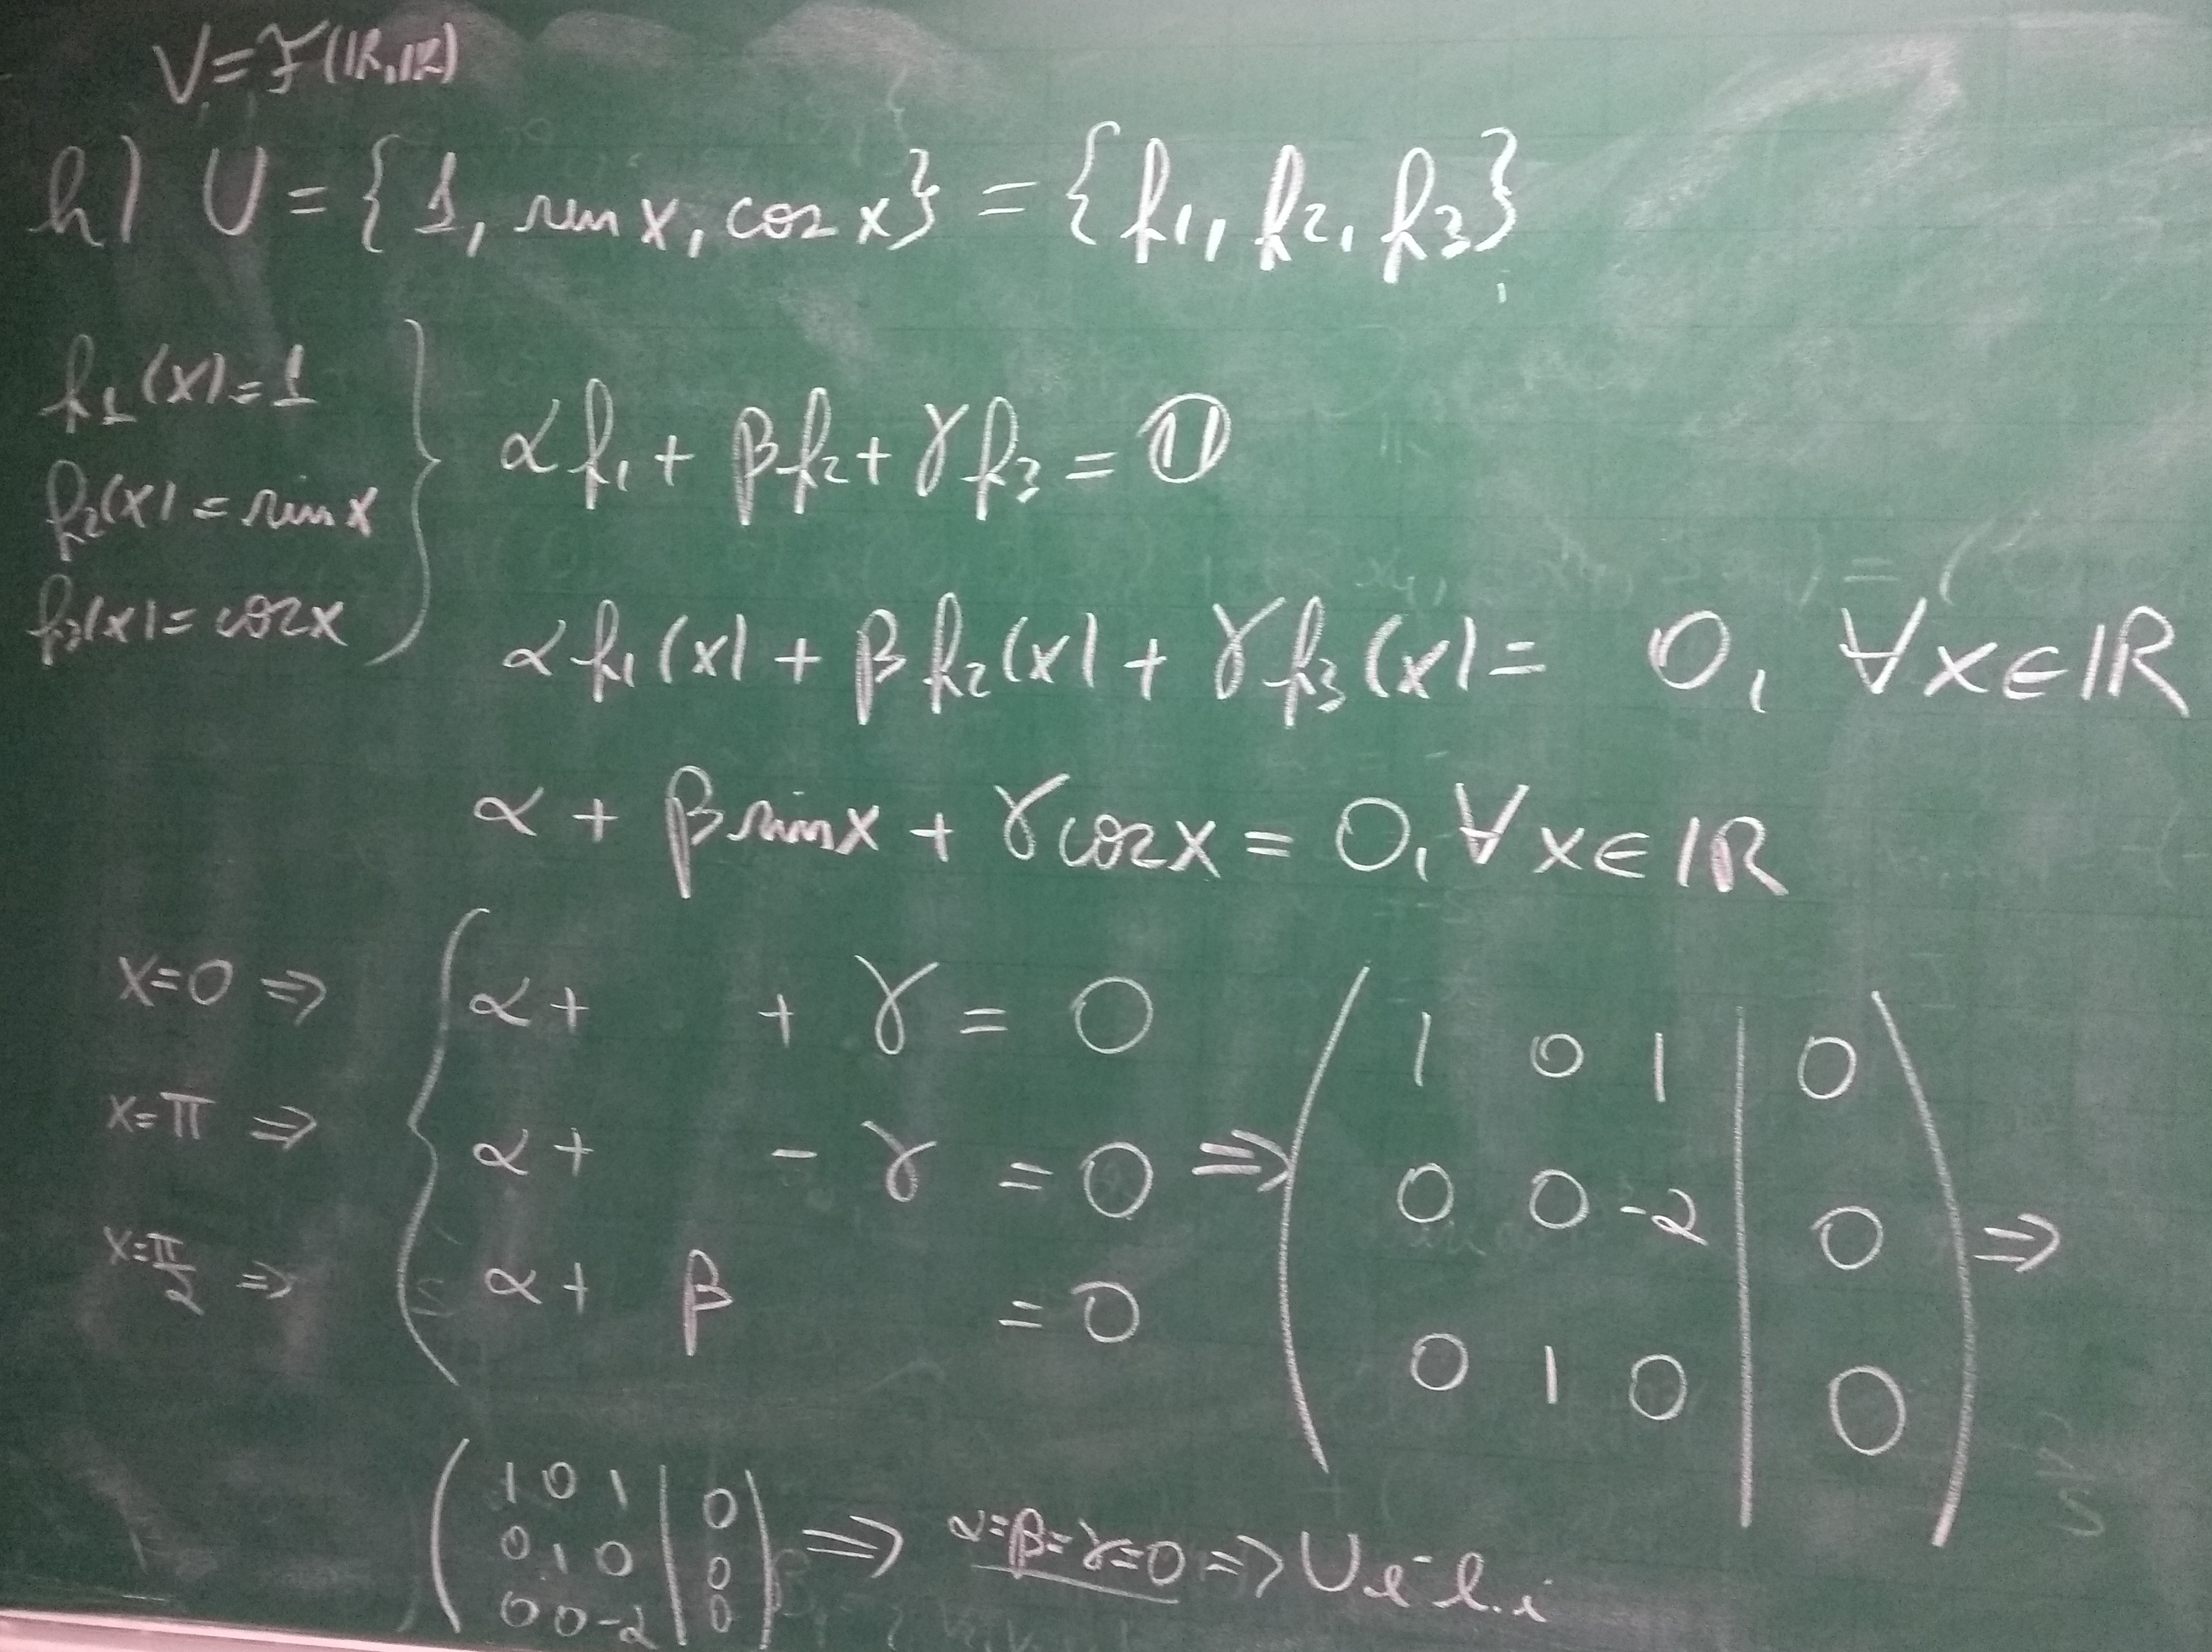 V = F(IR, IR)
h) U = { 1, sin x, cos x } = { f1, f2, f3 }
f1(x) = 1
f2(x) = sin x
f3(x) = cos x
α f1 + β f2 + γ f3 = 0
α f1(x) + β f2(x) + γ f3(x) = 0, ∀ x ∈ IR
α + β sin x + γ cos x = 0, ∀ x ∈ IR
x = 0 ⇒ α + + γ = 0
x = π ⇒ α + - γ = 0 ⇒
x = π/2 ⇒ α + β = 0
( 1 0 1 | 0
0 0 -2 | 0
0 1 0 | 0 ) ⇒
( 1 0 1 | 0
0 1 0 | 0
0 0 -2 | 0 ) ⇒ α = β = γ = 0 ⇒ U é l.i